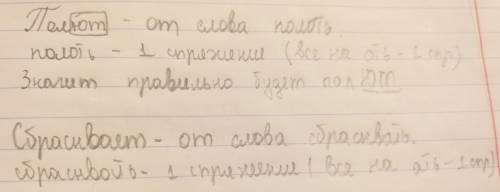 Полют - от слова полоть.
полоть - 1 спряжение (все на оть - 1 спр)
Значит правильно будет пол ют
Сбрасквает - от слова сбрасквать.
сбрасквать - 1 спряжение (все на ать - 1 спр)